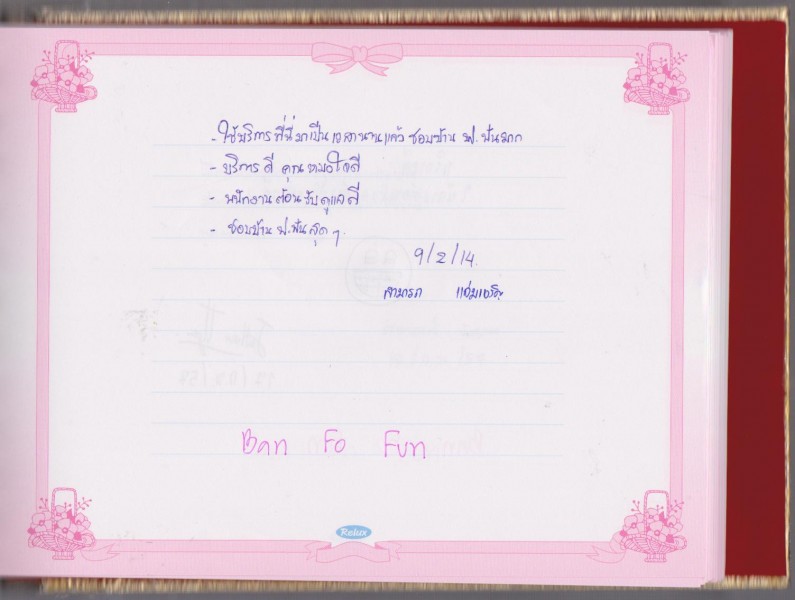 - ใช้บริการที่นี่มาเป็นเวลานานแล้ว ชอบบ้าน ฟ.ฟันมาก
- บริการดี คุณหมอใจดี
- พนักงานต้อนรับดูแลดี
- ชอบบ้าน ฟ.ฟันสุด ๆ
9/2/14
สามารถ
Ban Fo Fun
Relux